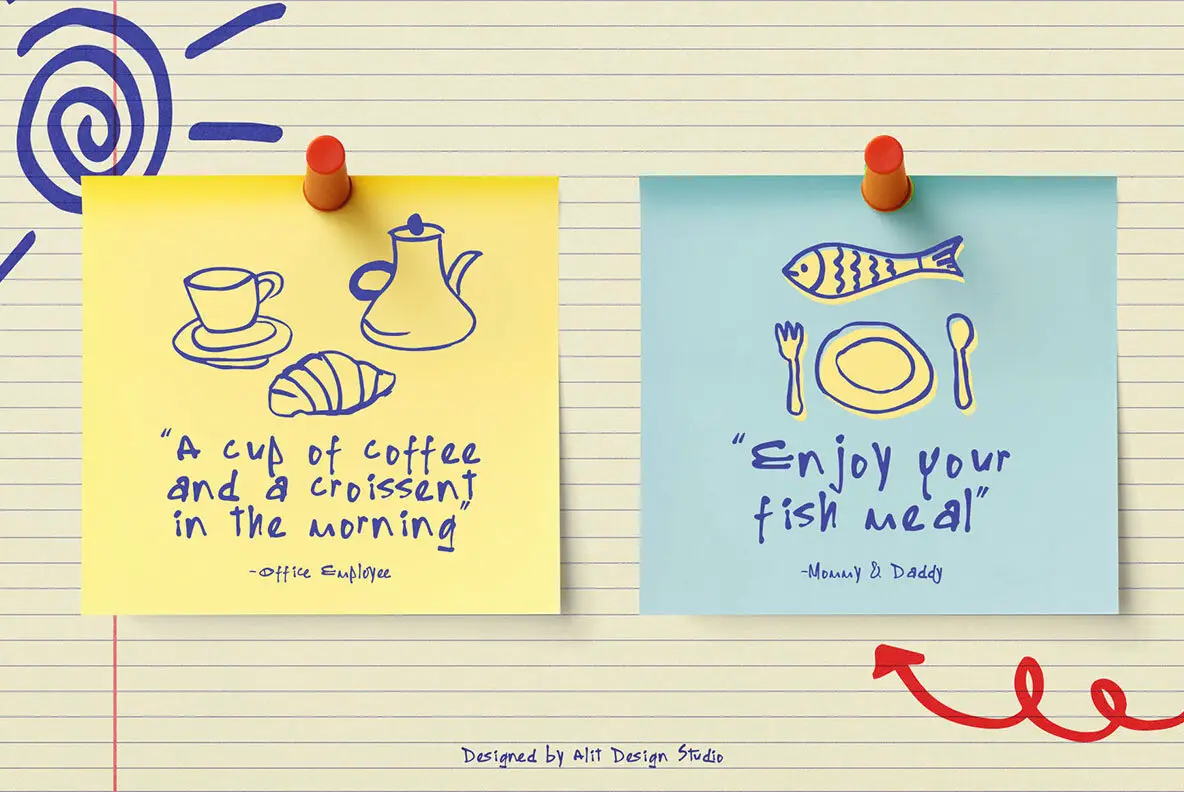 “A cup of coffee
and a croissent
in the morning”
-Office Employee
“Enjoy your
fish meal”
-Mommy & Daddy
Designed by Alit Design Studio